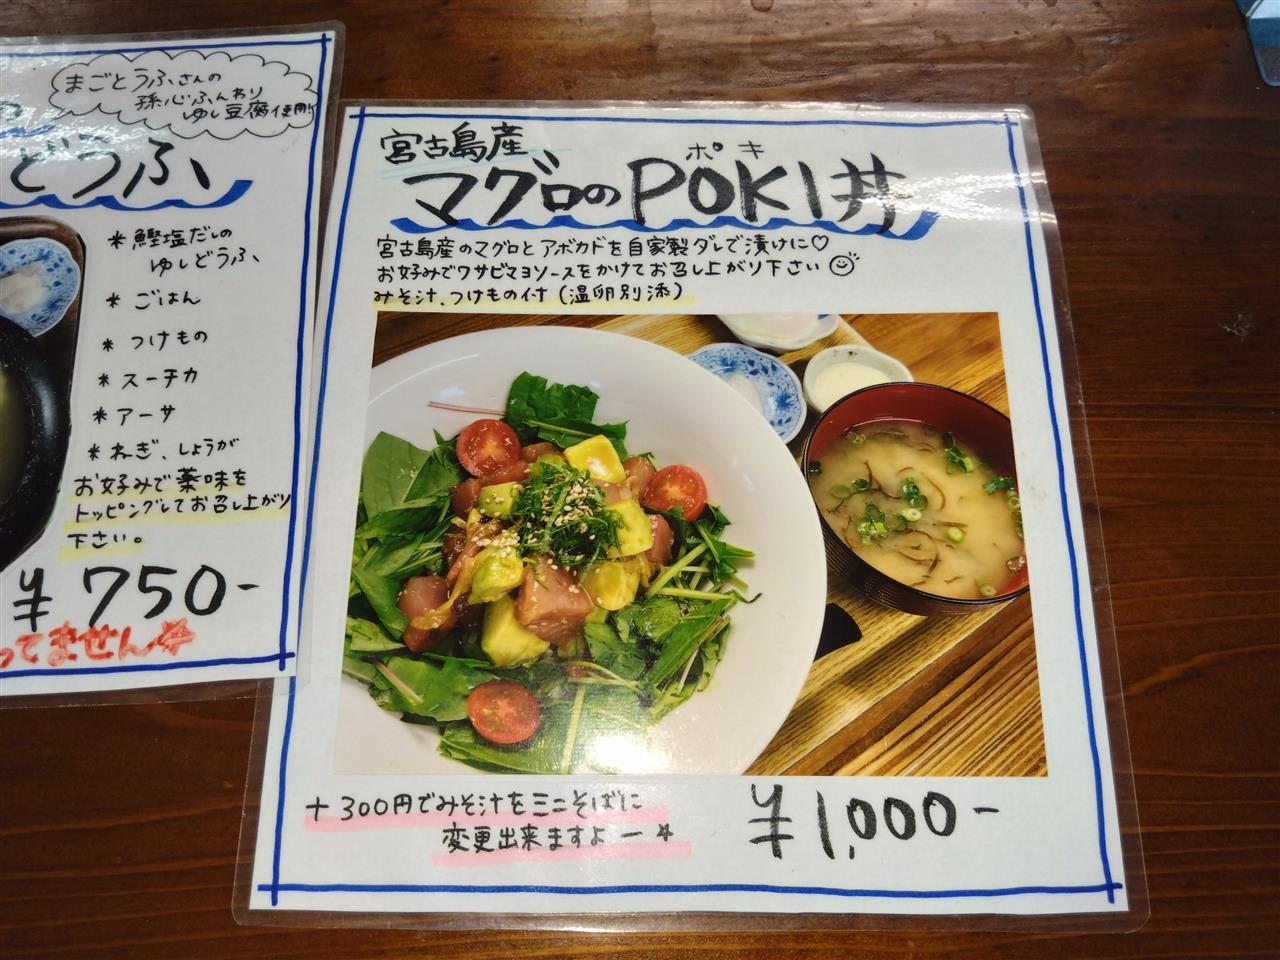 まごとうふさんの
孫心ふんわり
ゆし豆腐使用
どうふ
*鰹塩だしの
ゆしどうふ
*ごはん
*つけもの
*スーチカ
*アーサ
*ねぎ、しょうが
お好みで薬味を
トッピングしてお召し上がり
下さい。
¥750-
ってません☆
宮古島産
ポキ
マグロのPOKI丼
宮古島産のマグロとアボカドを自家製ダレで漬けに♡
お好みでワサビマヨソースをかけてお召し上がり下さい☺
みそ汁、つけもの付(温卵別添)
+300円でみそ汁をミニそばに
変更出来ますよー☆
¥1,000-